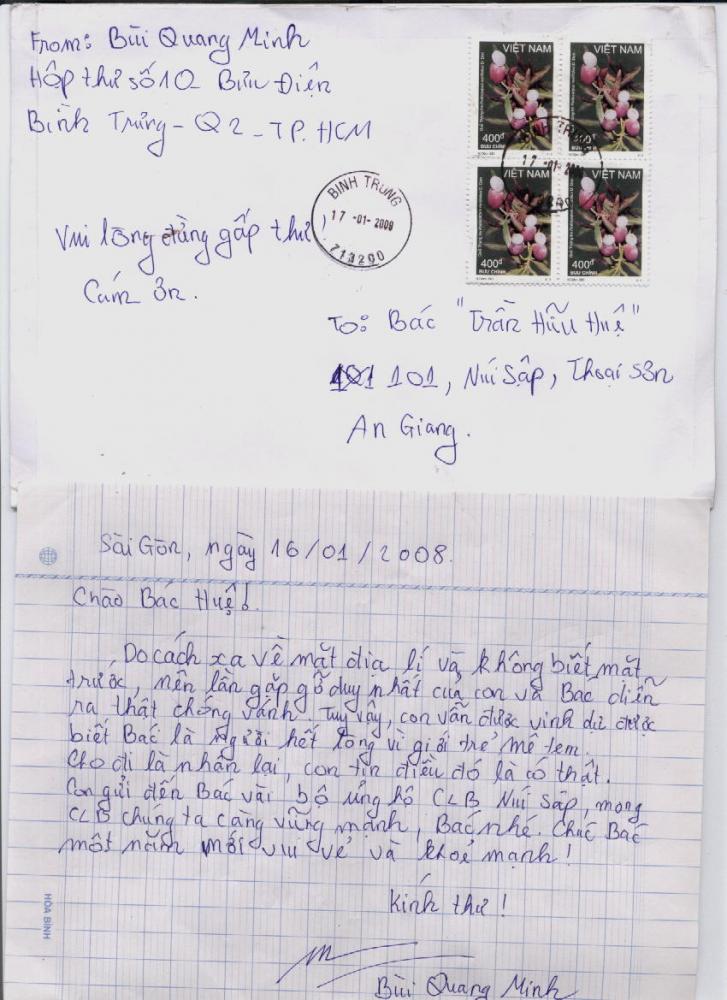 From: Bùi Quang Minh
Hộp thư số 10 Bưu Điện
Bình Trưng - Q2 - TP. HCM
VIỆT NAM
400đ
BƯU CHÍNH
VIỆT NAM
400đ
VIỆT NAM
400đ
BƯU CHÍNH
VIỆT NAM
400đ
BƯU CHÍNH
BINH TRUNG
17-01-2009
713290
Vui lòng đừng gấp thư!
Cám ơn.
To: Bác "Trần Hữu Huệ"
101, Núi Sập, Thoại Sơn
An Giang.
Sài Gòn, ngày 16/01/2008.
Chào Bác Huệ!
Do cách xa về mặt địa lí và không biết mặt
trước, nên lần gặp gỡ duy nhất của con và Bác diễn
ra thật chóng vánh. Tuy vậy, con vẫn được vinh dự được
biết Bác là người hết lòng vì giới trẻ mê tem.
Cho đi là nhận lại, con tin điều đó là có thật.
Con gửi đến Bác vài bộ ủng hộ CLB Núi Sập, mong
CLB chúng ta càng vững mạnh, Bác nhé. Chúc Bác
một năm mới vui vẻ và khoẻ mạnh!
Kính thư!
Bùi Quang Minh
HÒA BÌNH